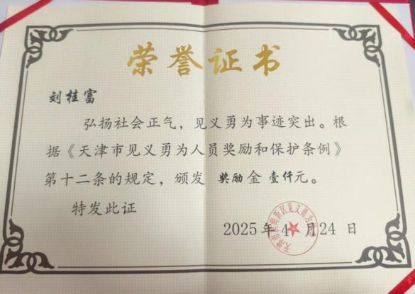 荣誉证书
刘桂富
弘扬社会正气，见义勇为事迹突出。根
据《天津市见义勇为人员奖励和保护条例》
第十二条的规定，颁发 奖励金 壹仟元。
特发此证
2025年4月24日